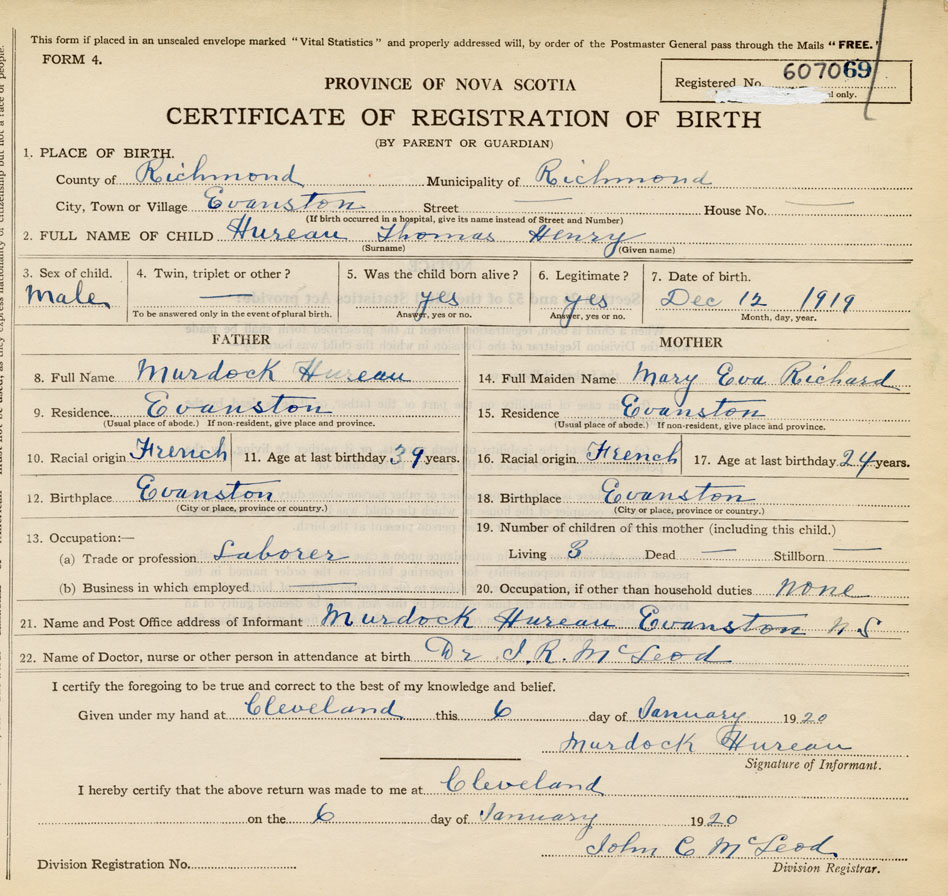 This form if placed in an unsealed envelope marked "Vital Statistics" and properly addressed will, by order of the Postmaster General pass through the Mails "FREE."
FORM 4.
Registered No. 607069
l only.
PROVINCE OF NOVA SCOTIA
CERTIFICATE OF REGISTRATION OF BIRTH
(BY PARENT OR GUARDIAN)
1. PLACE OF BIRTH.
County of Richmond Municipality of Richmond
City, Town or Village Evanston Street — House No. —
(If birth occurred in a hospital, give its name instead of Street and Number)
2. FULL NAME OF CHILD Hureau Thomas Henry
(Surname) (Given name)
3. Sex of child. 4. Twin, triplet or other? 5. Was the child born alive? 6. Legitimate? 7. Date of birth.
Male — yes yes Dec 12 1919
To be answered only in the event of plural birth. Answer, yes or no. Answer, yes or no. Month, day, year.
FATHER MOTHER
8. Full Name Murdock Hureau 14. Full Maiden Name Mary Eva Richard
9. Residence. Evanston 15. Residence Evanston
(Usual place of abode.) If non-resident, give place and province. (Usual place of abode.) If non-resident, give place and province.
10. Racial origin French 11. Age at last birthday 39 years. 16. Racial origin French 17. Age at last birthday 24 years.
12. Birthplace Evanston 18. Birthplace Evanston
(City or place, province or country.) (City or place, province or country.)
13. Occupation:— 19. Number of children of this mother (including this child.)
(a) Trade or profession Laborer Living 3 Dead — Stillborn —
(b) Business in which employed — 20. Occupation, if other than household duties none
21. Name and Post Office address of Informant Murdock Hureau Evanston N S
22. Name of Doctor, nurse or other person in attendance at birth Dr J. R. McLeod
I certify the foregoing to be true and correct to the best of my knowledge and belief.
Given under my hand at Cleveland this 6 day of January 1920
Murdock Hureau
Signature of Informant.
I hereby certify that the above return was made to me at Cleveland
on the 6 day of January 1920
John C McLeod
Division Registration No. Division Registrar.